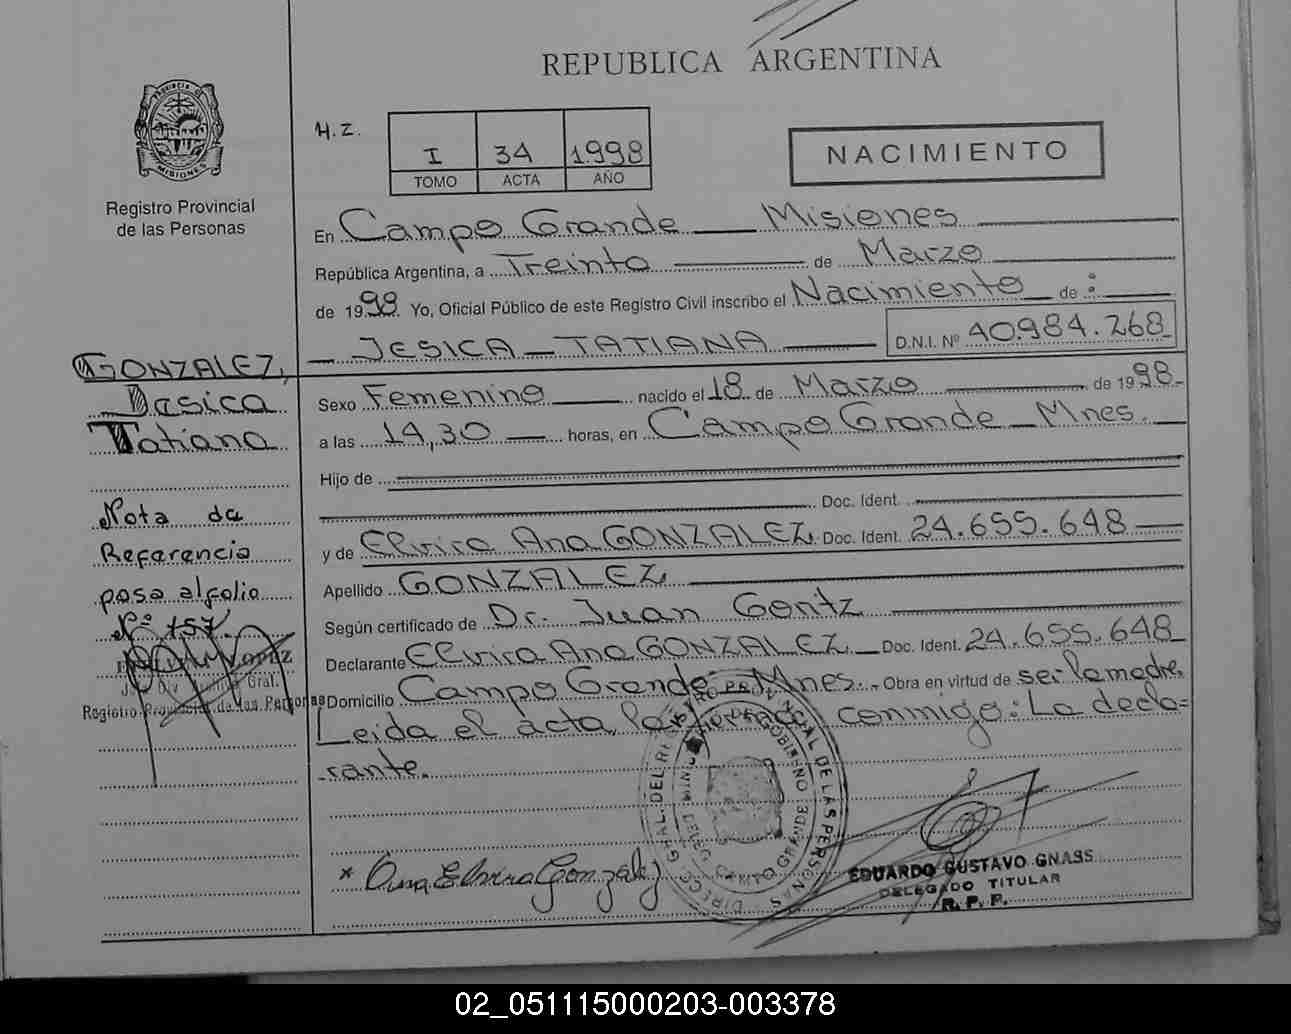 REPUBLICA ARGENTINA
Provincia D
MISIONES
Registro Provincial
de las Personas
H.Z.
I 34 1998
TOMO ACTA AÑO
NACIMIENTO
En Campo Grande Misiones
República Argentina, a Treinta de Marzo
de 1998. Yo, Oficial Público de este Registro Civil inscribo el Nacimiento de :
JESICA TATIANA D.N.I. Nº 40.984.268
Sexo Femenino nacido el 18 de Marzo de 1998
a las 14,30 horas, en Campo Grande Mnes.
Hijo de
Doc. Ident.
y de Elvira Ana GONZALEZ Doc. Ident. 24.655.648
Apellido GONZALEZ
Según certificado de Dr. Juan Gontz
Declarante Elvira Ana GONZALEZ Doc. Ident. 24.655.648
Domicilio Campo Grande Mnes. Obra en virtud de ser la madre,
Leida el acta, la conmigo: La decla=
rante.
GONZALEZ,
Jesica
Tatiana
Nota de
Referencia
pasa al folio
Nº 157.
LOPEZ
Gral.
Registro Provincial de las Personas
DIRECC. GRAL. DEL REGISTRO PROVINCIAL DE LAS PERSONAS
DELEG. CAMPO GRANDE
* Ana Elvira Gonzalez
EDUARDO GUSTAVO GNASS
DELEGADO TITULAR
R. P. P.
02_051115000203-003378